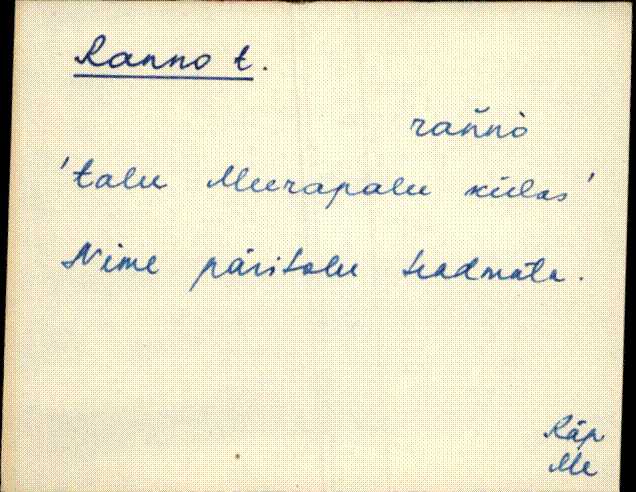 Ranno t.
rañnò
'talu Meerapalu külas'
Nime päritolu teadmata.
Räp
Me